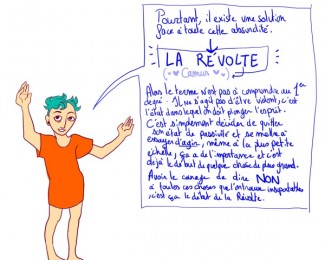 Pourtant, il existe une solution
face à toute cette absurdité.
LA RÉVOLTE
Camus
Alors le terme n'est pas à comprendre au 1er
degré. Il ne s'agit pas d'être violent, c'est
l'état dans lequel on doit plonger l'esprit.
C'est simplement décider de quitter
son état de passivité et se mettre à
essayer d'agir, même à la plus petite
échelle, ça a de l'importance et c'est
déjà le début de quelque chose de plus grand.
Avoir le courage de dire NON
à toutes ces choses que l'on trouve insupportables
c'est ça le début de la Révolte.